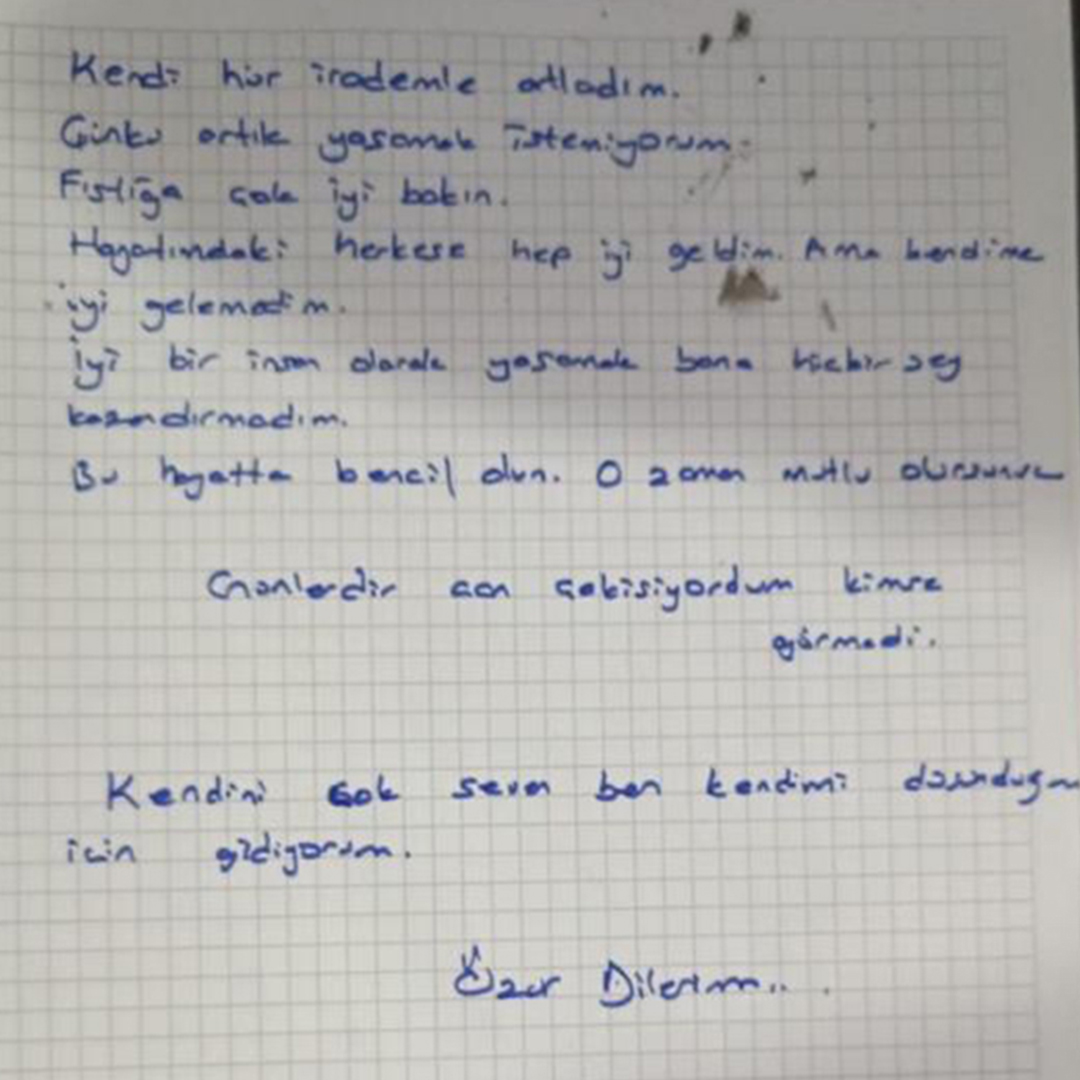 Kendi hür irademle atladım.
Çünkü artık yaşamak istemiyorum.
Fıstığa çok iyi bakın.
Hayatımdaki herkese hep iyi geldim. Ama kendime
iyi gelemedim.
İyi bir insan olarak yaşamak bana hiçbir şey
kazandırmadım.
Bu hayatta bencil olun. O zaman mutlu olursunuz
can çekişiyordum kimse
görmedi.
Kendini çok seven ben kendimi
için gidiyorum.
Özür Dilerim...